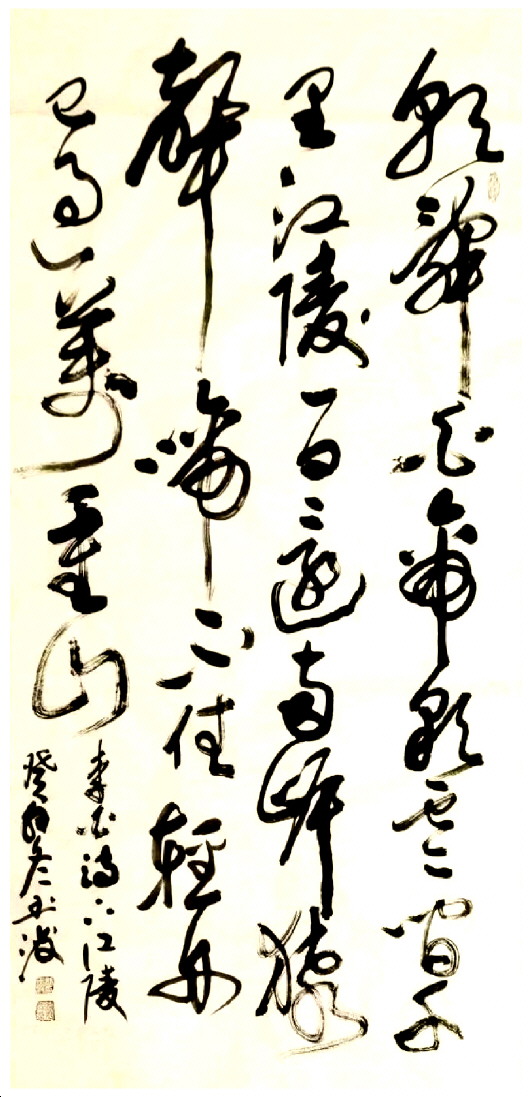 朝辭白帝彩雲間千
里江陵一日還兩岸猿
聲啼不住輕舟
已過萬重山
李白詩下江陵
癸卯冬